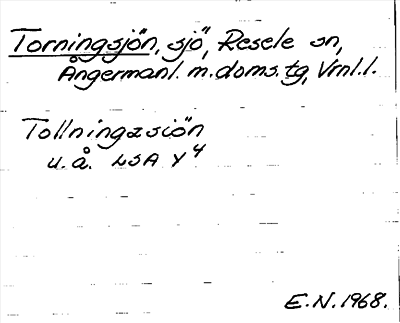 Torningsjön, sjö, Resele sn,
Ångermanl. m. doms. tg, Vrnl.l.
Tollningzsiön
u.å. LSA Y4
E.N. 1968.